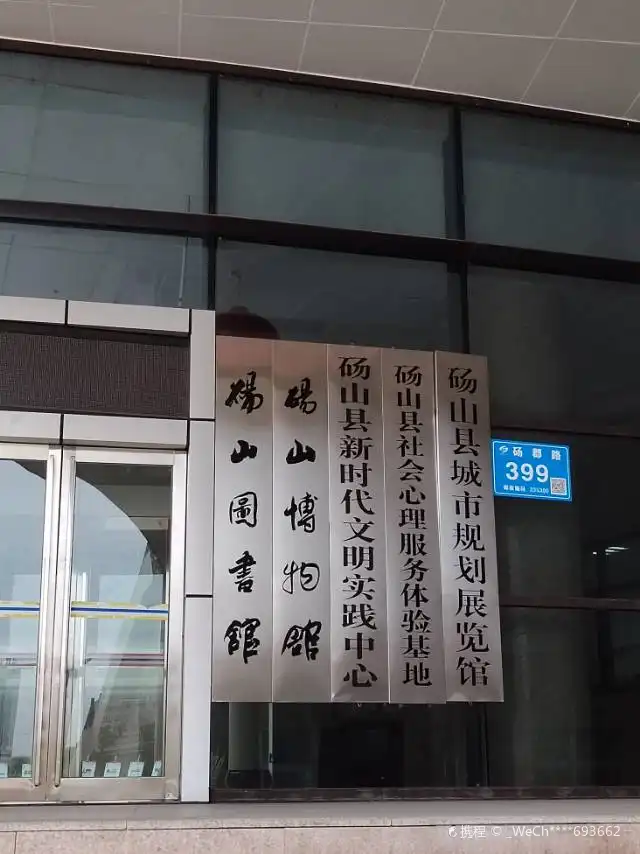 砀山圖書館
砀山博物館
砀山县新时代文明实践中心
砀山县社会心理服务体验基地
砀山县城市规划展览馆
砀郡路
399
携程 © _WeCh****693662